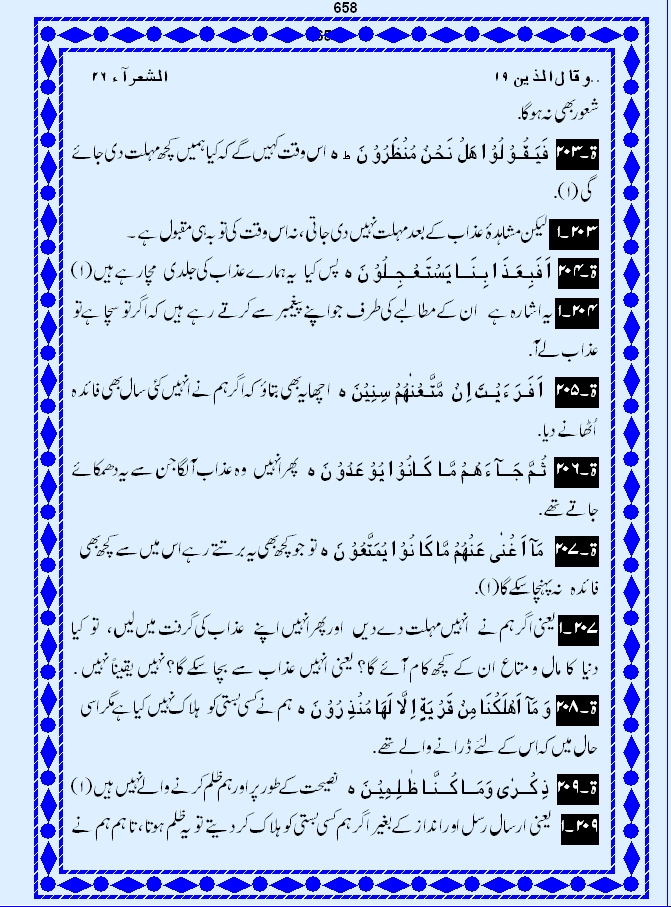 658
..وقال الذين ١٩ الشعرآء ٢٦
شعور بھی نہ ہو گا.
ة۔٢٠٣ فَيَقُوْلُوْا هَلْ نَحْنُ مُنْظَرُوْنَ ؕ ٥ اس وقت کہیں گے کہ کیا ہمیں کچھ مہلت دی جائے
گی (١).
٢٠٣۔١ لیکن مشاہدۂ عذاب کے بعد مہلت نہیں دی جاتی، نہ اس وقت کی توبہ ہی مقبول ہے ۔
ة۔٢٠٤ اَفَبِعَذَابِنَا يَسْتَعْجِلُوْنَ ٥ پس کیا یہ ہمارے عذاب کی جلدی مچا رہے ہیں (١)
٢٠٤۔١ یہ اشارہ ہے ان کے مطالبے کی طرف جو اپنے پیغمبر سے کرتے رہے ہیں کہ اگر تو سچا ہے تو
عذاب لے آ.
ة۔٢٠٥ اَفَرَءَيْتَ اِنْ مَّتَّعْنٰهُمْ سِنِيْنَ ٥ اچھا یہ بھی بتاؤ کہ اگر ہم نے انہیں کئی سال بھی فائدہ
اُٹھانے دیا.
ة۔٢٠٦ ثُمَّ جَآءَهُمْ مَّا كَانُوْا يُوْعَدُوْنَ ٥ پھر انہیں وہ عذاب آ لگا جن سے یہ دھمکائے
جاتے تھے.
ة۔٢٠٧ مَآ اَغْنٰى عَنْهُمْ مَّا كَانُوْا يُمَتَّعُوْنَ ٥ تو جو کچھ بھی یہ برتتے رہے اس میں سے کچھ بھی
فائدہ نہ پہنچا سکے گا (١).
٢٠٧۔١ یعنی اگر ہم نے انہیں مہلت دے دیں اور پھر انہیں اپنے عذاب کی گرفت میں لیں، تو کیا
دنیا کا مال و متاع ان کے کچھ کام آئے گا؟ یعنی انہیں عذاب سے بچا سکے گا؟ نہیں یقیناً نہیں .
ة۔٢٠٨ وَمَآ اَهْلَكْنَا مِنْ قَرْيَةٍ اِلَّا لَهَا مُنْذِرُوْنَ ٥ ہم نے کسی بستی کو ہلاک نہیں کیا ہے مگر اسی
حال میں کہ اس کے لئے ڈرانے والے تھے.
ة۔٢٠٩ ذِكْرٰى وَمَا كُنَّا ظٰلِمِيْنَ ٥ نصیحت کے طور پر اور ہم ظلم کرنے والے نہیں ہیں (١)
٢٠٩۔١ یعنی ارسال رسل اور انداز کے بغیر اگر ہم کسی بستی کو ہلاک کر دیتے تو یہ ظلم ہوتا، تاہم ہم نے